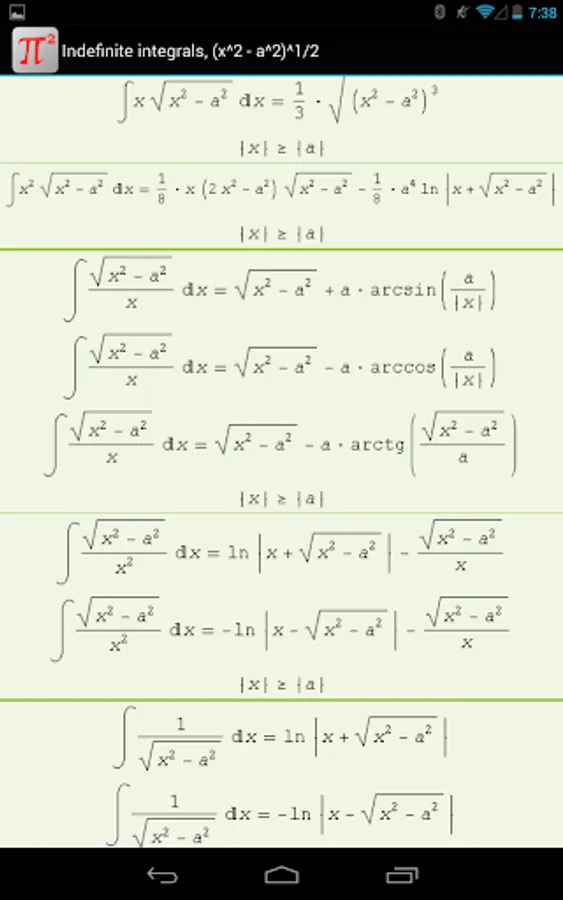 7:38
π² Indefinite integrals, (x^2 - a^2)^1/2
∫ x √(x² - a²) dx = 1/3 · √((x² - a²)³)
|x| ≥ |a|
∫ x² √(x² - a²) dx = 1/8 · x (2 x² - a²) √(x² - a²) - 1/8 · a⁴ ln |x + √(x² - a²)|
|x| ≥ |a|
∫ √(x² - a²)/x dx = √(x² - a²) + a · arcsin(a/|x|)
∫ √(x² - a²)/x dx = √(x² - a²) - a · arccos(a/|x|)
∫ √(x² - a²)/x dx = √(x² - a²) - a · arctg(√(x² - a²)/a)
|x| ≥ |a|
∫ √(x² - a²)/x² dx = ln |x + √(x² - a²)| - √(x² - a²)/x
∫ √(x² - a²)/x² dx = -ln |x - √(x² - a²)| - √(x² - a²)/x
|x| ≥ |a|
∫ 1/√(x² - a²) dx = ln |x + √(x² - a²)|
∫ 1/√(x² - a²) dx = -ln |x - √(x² - a²)|